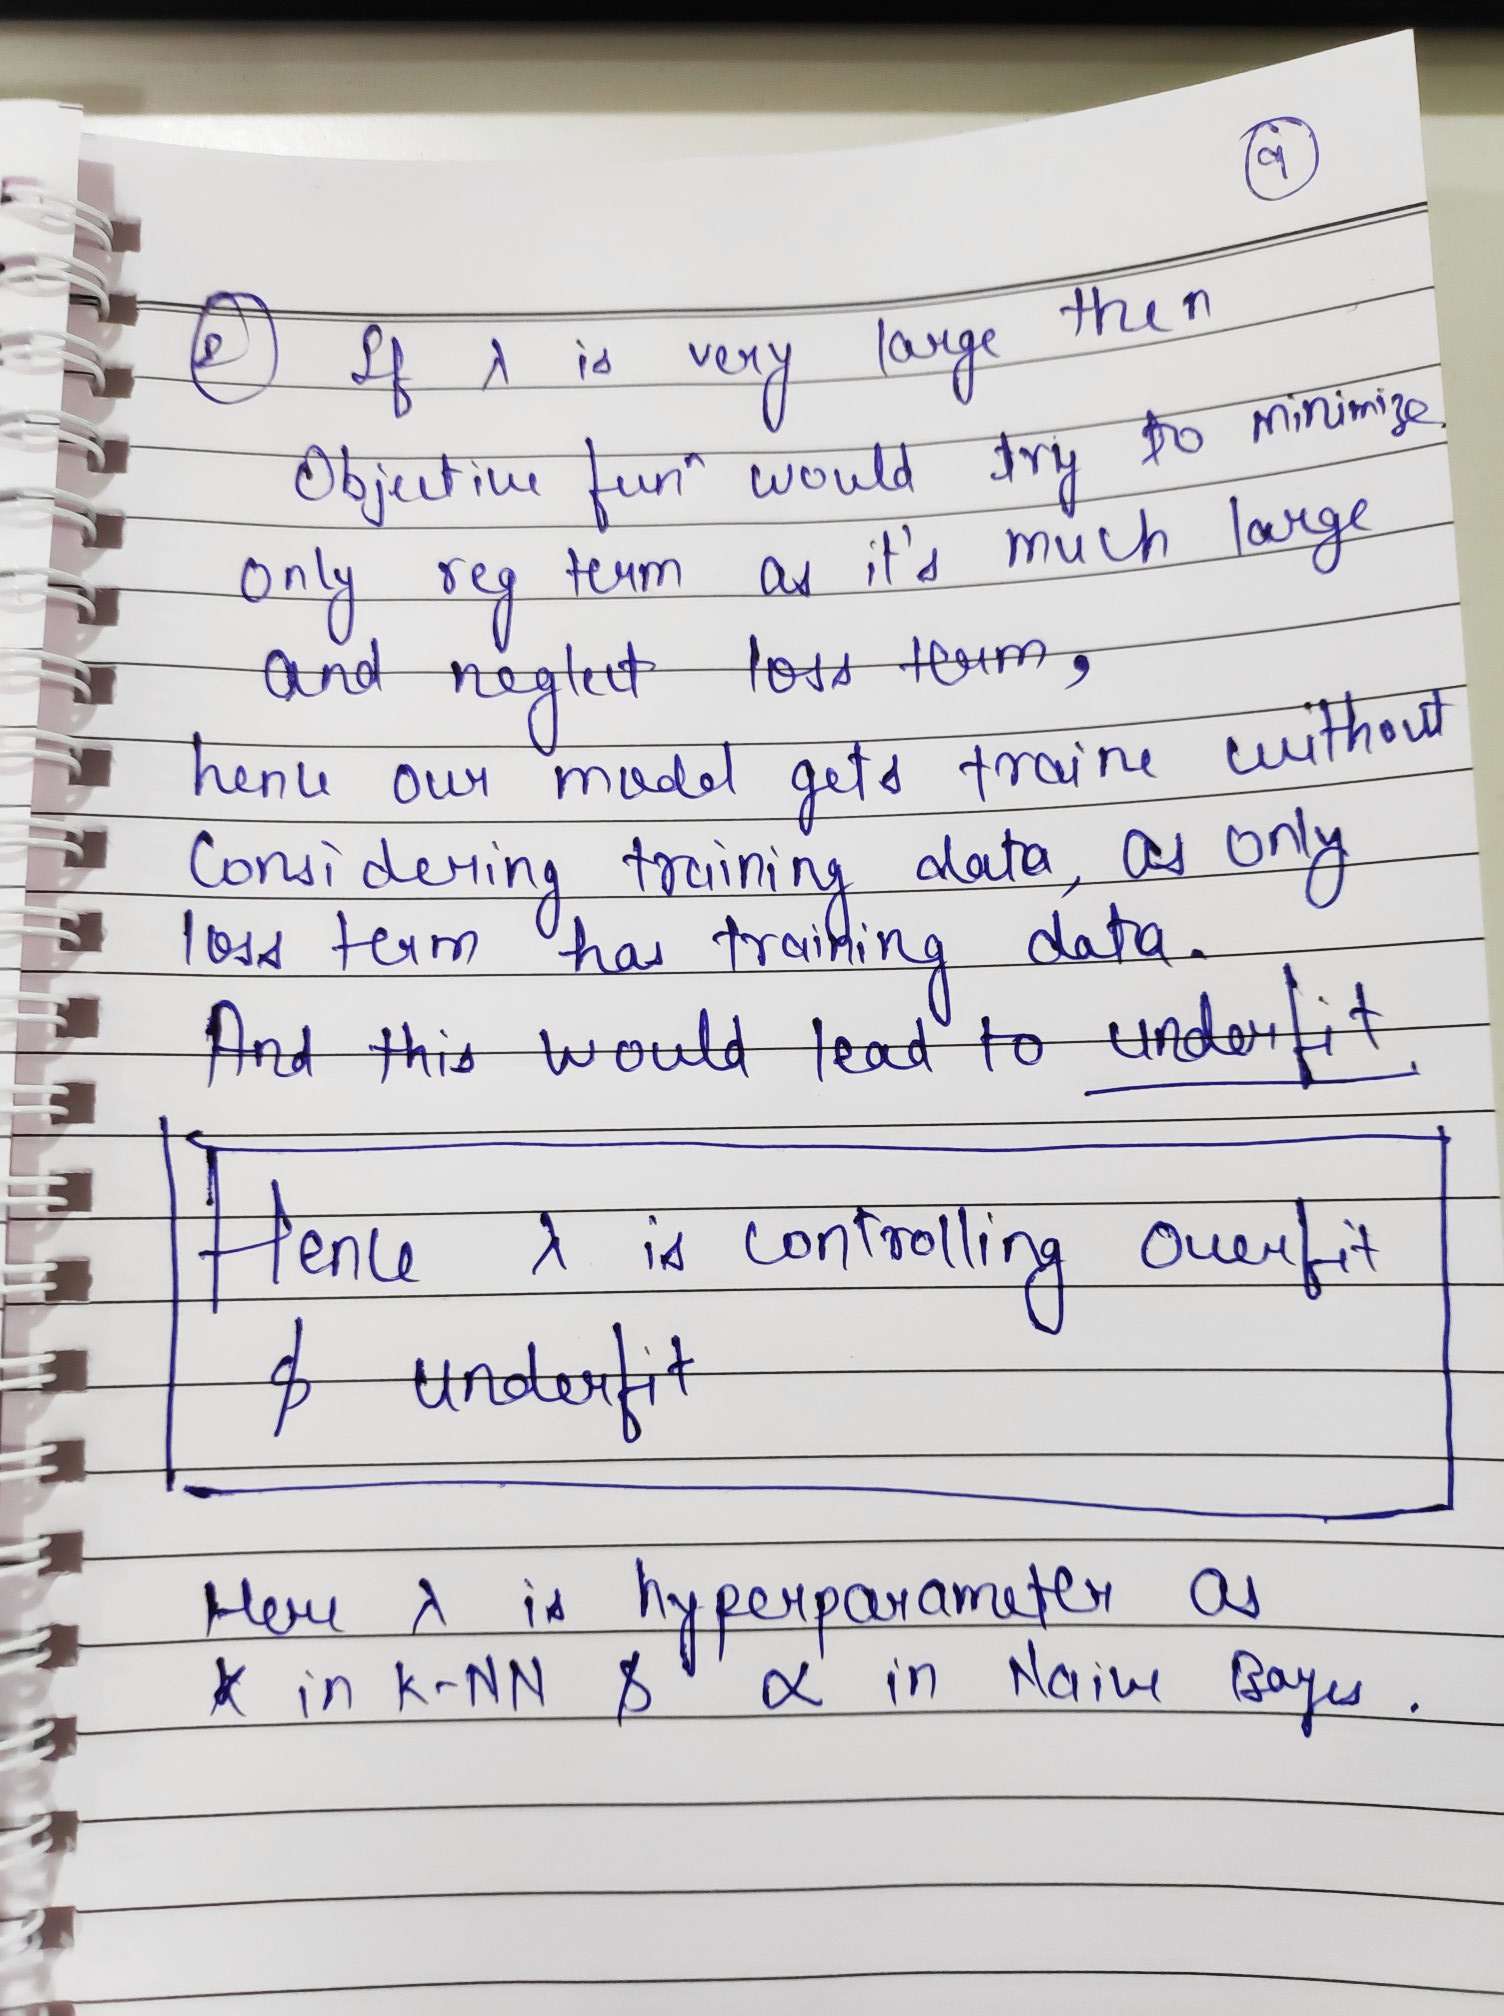 9
2 If λ is very large then
Objective funⁿ would try to minimize
only reg term as it's much large
and neglect loss term,
hence our model gets traine without
Considering training data, as only
loss term has training data.
And this would lead to underfit.
Hence λ is controlling overfit
& underfit
Here λ is hyperparameter as
K in K-NN & α in Naive Bayes.